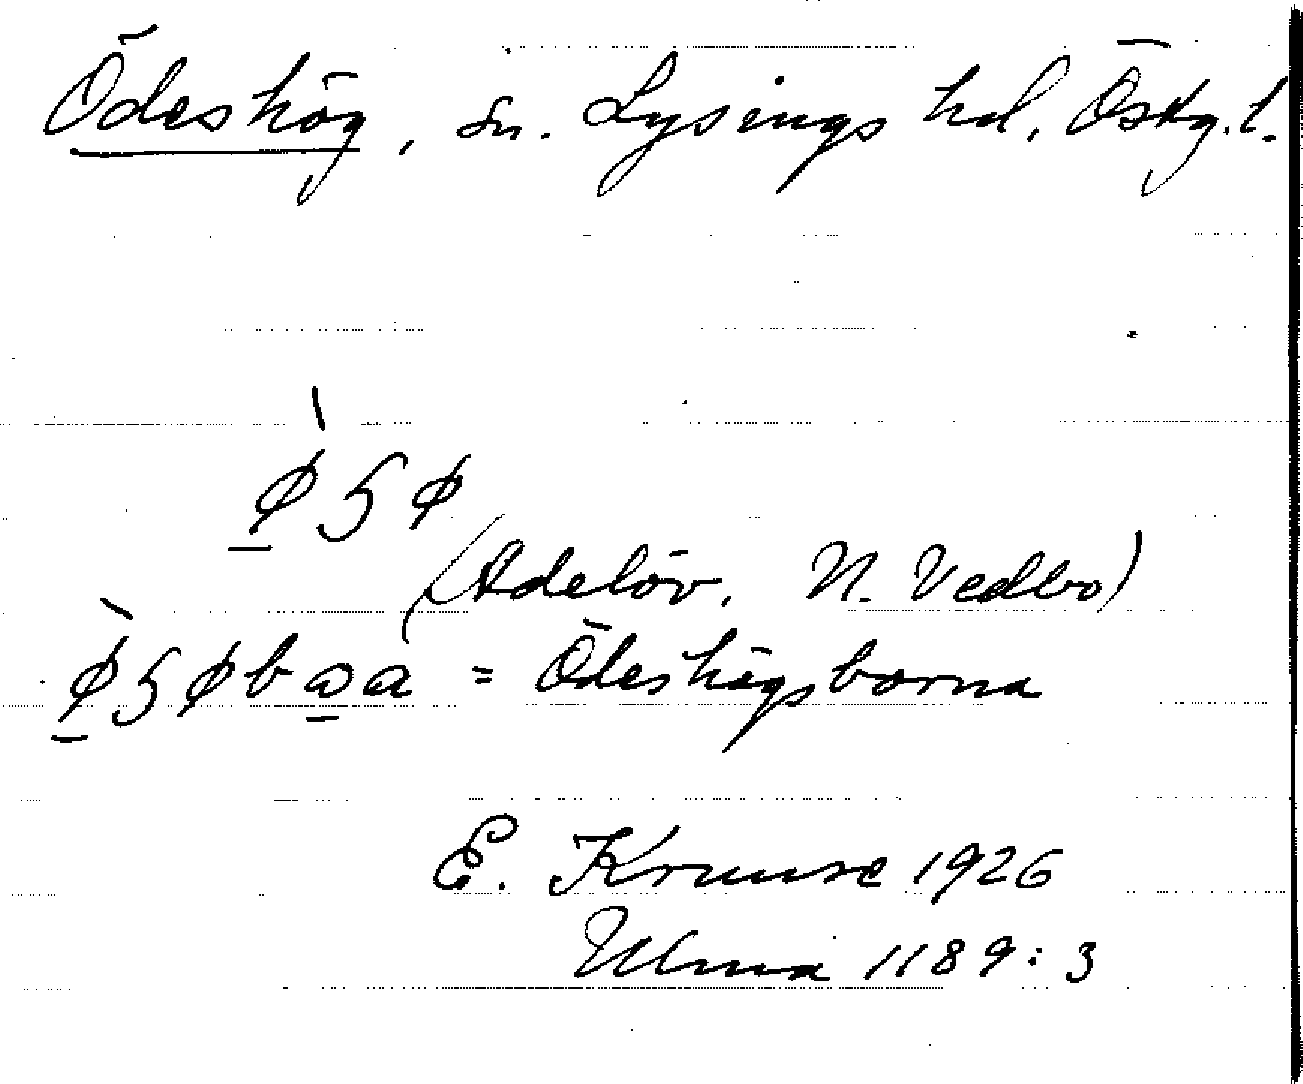 Ödeshög, sn. Lysings hd, Östg.l.
ø̲̀ʂø
(Adelöv, N. Vedbo)
ø̲̀ʂøbɷ̲a = Ödeshögsborna
E. Kruuse 1926
Ulma 1189:3